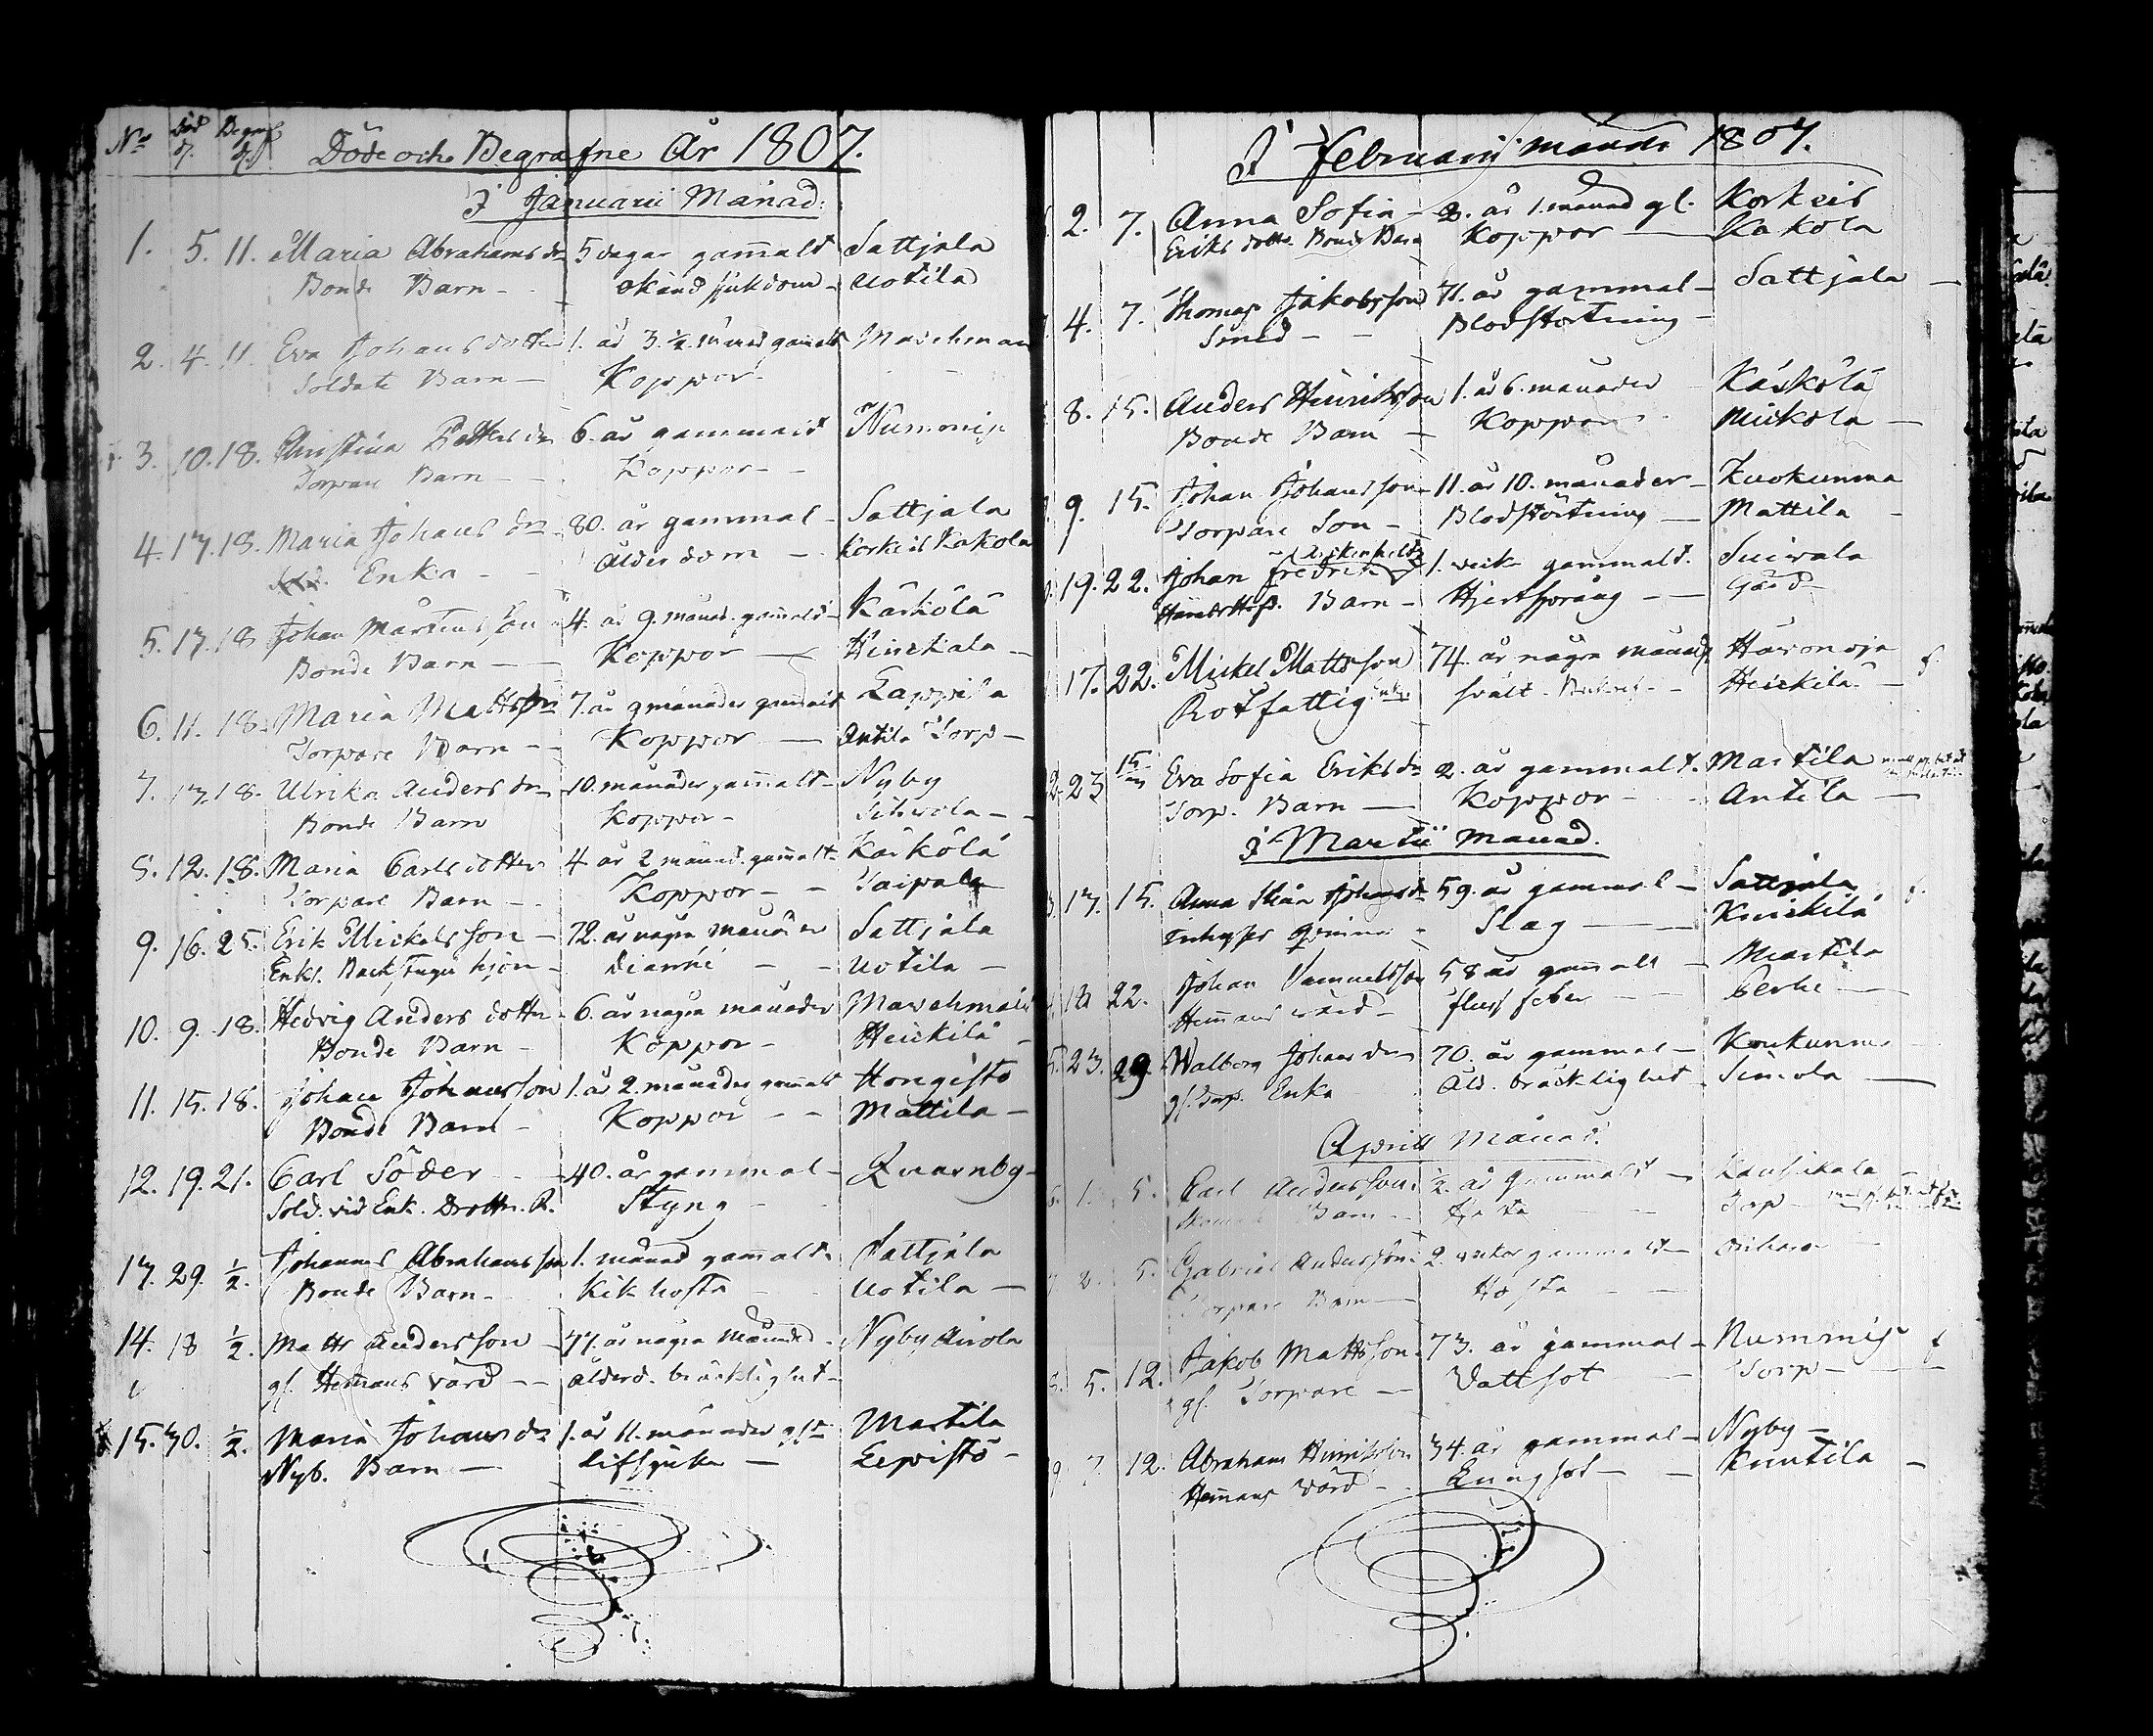 No Död d. Begraf. d.
Döde och Begrafne År 1807.
I Januarii Månad.
1. 5. 11. Maria Abrahams dr 5 dagar gamalt Sattjala
Bonde Barn - okänd sjukdom - Uotila
2. 4. 11. Eva Johans dotter 1. år 3 ½ månad gamalt
Soldate Barn - Koppor
3. 10. 18. Christina dr 6. år gammalt Nummis
Torpare Barn - Koppor -
4. 17. 18. Maria Johans dr 80. år gammal - Sattjala
Enka - Ålderdom - Korkeis Kakola
5. 17. 18 Johan Mårtens Son 4. år 9. månad. gamalt - Kärkölä
Bonde Barn - Koppor - Heickala -
6. 11. 18. Maria Matts dr 7. år 9 månader gamalt Lappila
Torpare Barn - Koppor - Antila Torp -
7. 17. 18. Ulrika Anders dr 10. månader gamalt - Nyby
Bonde Barn Koppor -
8. 12. 18. Maria Carls dotter 4 år 2 månad. gamalt Kärkölä
Torpare Barn - Koppor - - Taipale
9. 16. 25. Erik Mickelsson - 72. år några månader Sattjala
Enkl. Backstugu hjon - diarrhé - - Uotila -
10. 9. 18. Hedvig Anders dotter - 6. år några månader
Bonde Barn - Koppor - Heickilä -
11. 15. 18. Johan Johansson 1. år 2. månader gamalt Hongisto
Bonde Barn - Koppor - - Mattila -
12. 19. 21. Carl Söder - 40. år gammal - Quarnby -
Sold. vid Enk. Drottn. R. Styng -
13. 29. ½. Johannes Abrahamsson 1. månad gamalt Sattjala
Bonde Barn - Kikhosta - Uotila -
14. 18 ½. Matts Andersson - 77. år några månader - Nyby Airola
gl. Hemans värd - - ålderd. bräcklighet -
15. 30. ½. Maria Johans dr 1. år 11. månader glt Martila
Nyb. Barn - Lifsjuka - Lepistö -
I Februarii månad 1807.
2. 7. Anna Sofia - 2. år 1. månad gl. Korkeis
Eriks dotter Bonde Barn Koppor - Kakola
4. 7. Thomas Jakobsson 71. år gammal - Sattjala -
Smed - - Blodstörtning -
8. 15. Anders Henriksson 1. år 6. månader Kärkölä
Bonde Barn - Koppor Mickola -
9. 15. Johan Johansson - 11. år 10. månader - Kuokunma
Torpare Son - Blodstörtning - Mattila -
19. 22. Johan Fredrik 1. veck gammalt.
Barn - Hjertsprång - - Gård
17. 22. Mickel Mattsson 74. år några månad Haromoja f.
Rotfattig - Heickilä -
23 15 Eva Sofia Eriks dr 2. år gammalt. Martila
Torp. Barn - Koppor - Antila -
I Martii månad.
17. 15. Anna Johans dr 59. år gammal - Sattjala
Slag -
22. Johan Samuelsson 58 år gamalt - Martila
Hemans värd - fluss feber - Perhe -
23. 29. Walborg Johans dr 70. år gammal - Kuokunma
gl. Torp. Enka Åld. bräcklighet - Simola -
Aprill månad.
1. 5. Carl Andersson ½. år gammalt -
Barn - Hosta - - Torp -
2. 5. Gabriel Andersson 2. veckor gammalt
Torpare Barn - Hosta - -
5. 12. Jakob Mattsson 73. år gammal - Nummis f
gl. Torpare - Vattsot Torp -
7. 12. Abraham Henriksson 34. år gammal - Nyby -
Hemans värd - Lungsot - - Knutila -